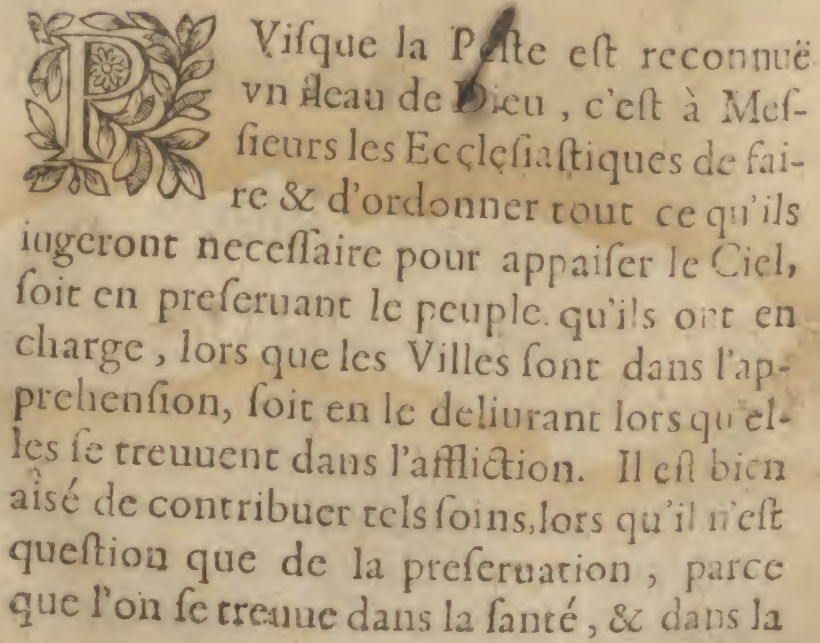 PVifque la Pefte eft reconnuë
vn fleau de Dieu , c'eft à Mef-
fieurs les Ecclefiaftiques de fai-
re & d'ordonner tout ce qu'ils
iugeront neceffaire pour appaifer le Ciel,
foit en preferuant le peuple qu'ils ont en
charge , lors que les Villes font dans l'ap-
prehenfion, foit en le deliurant lors qu'el-
les fe treuuent dans l'affliction. Il eft bien
aisé de contribuer tels foins, lors qu'il n'eft
queftion que de la preferuation , parce
que l'on fe treuue dans la fanté , & dans la